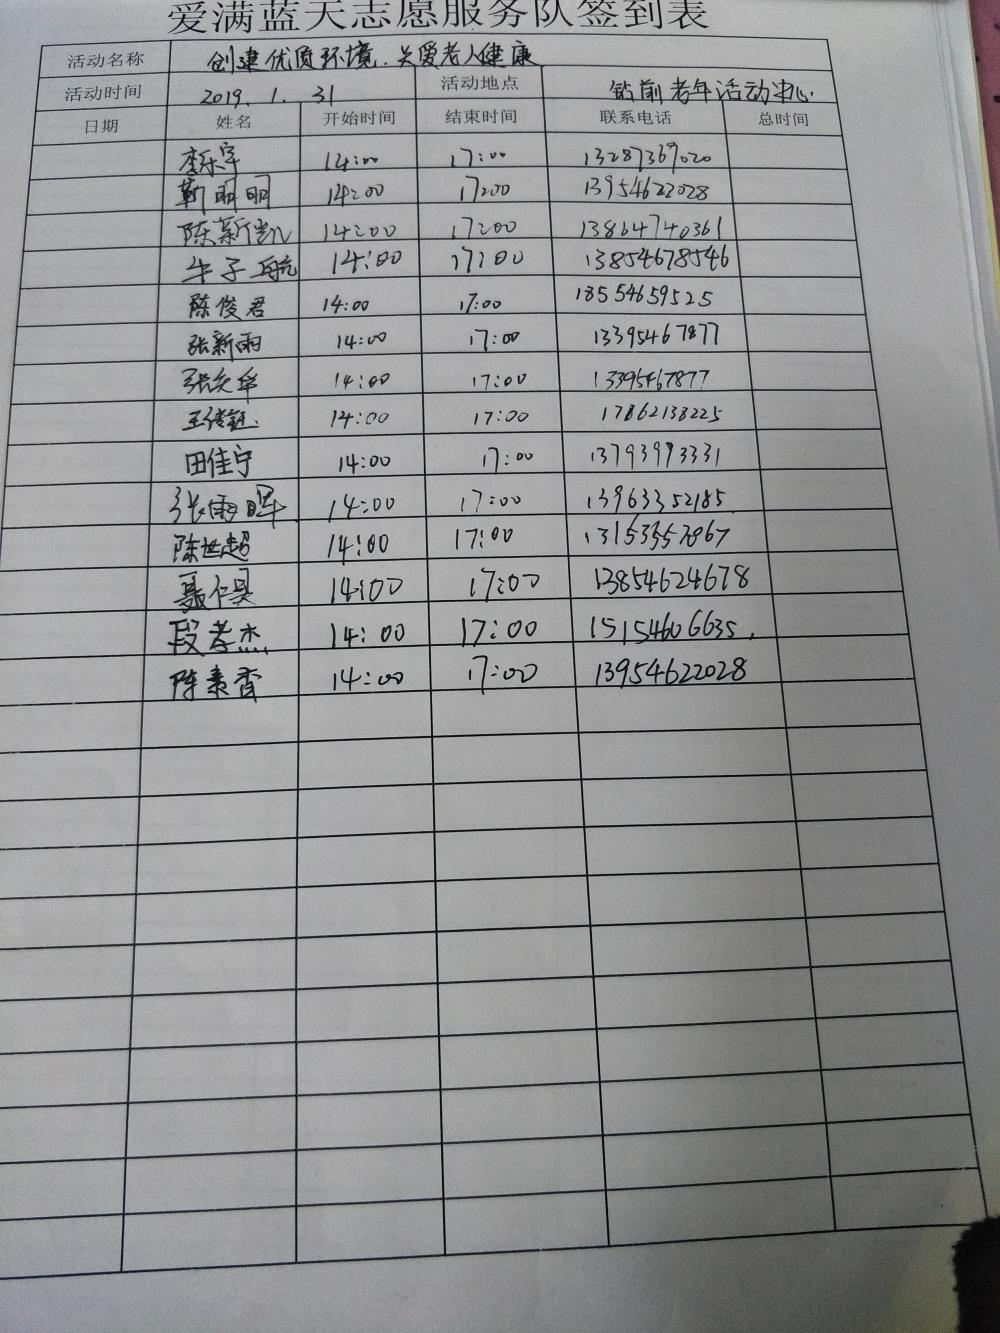 爱满蓝天志愿服务队签到表
活动名称 创建优质环境.关爱老人健康
活动时间 2019.1.31 活动地点 钻前老年活动中心.
日期 姓名 开始时间 结束时间 联系电话 总时间
李乐宇 14:00 17:00 13287369020
靳明明 14:00 17:00 13954622028
陈新凯 14:00 17:00 13864740361
牛子航 14:00 17:00 13854678546
陈俊君 14:00 17:00 18554659525
张新雨 14:00 17:00 13395467877
14:00 17:00 13395467877
14:00 17:00 17862138225
田佳宁 14:00 17:00 13793973331
张雨晖 14:00 17:00 13963352185
陈世超 14:00 17:00
聂仁昊 14:00 17:00 13854624678
段孝杰 14:00 17:00 15154606635.
陈素香 14:00 17:00 13954622028